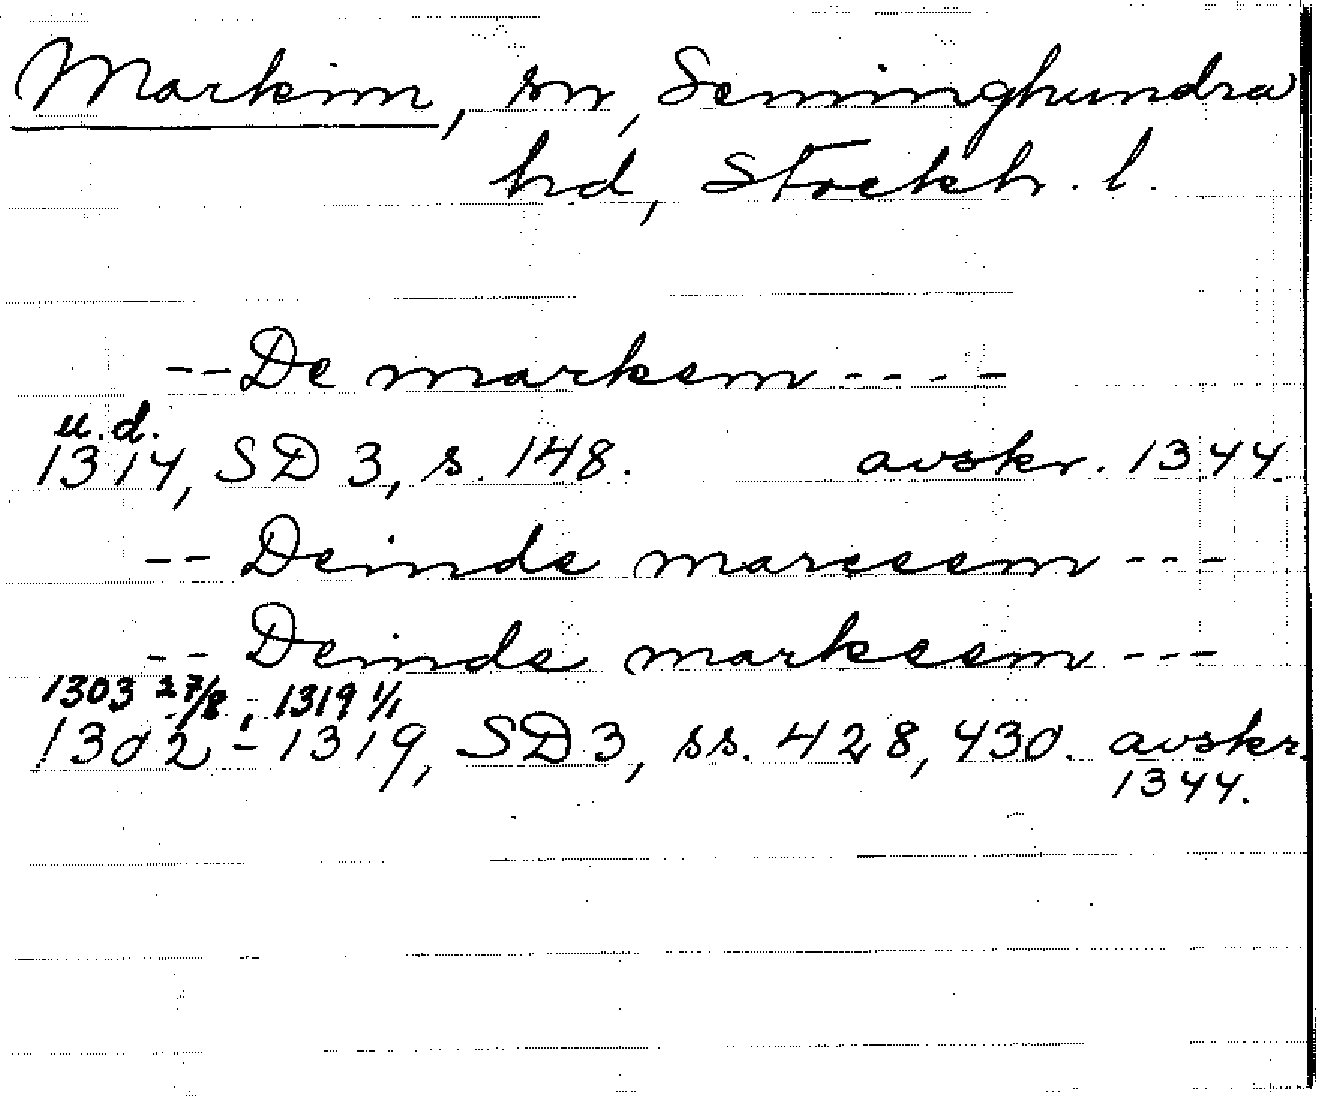 Markim, sn, Seminghundra
hd, Stockh. l.
-- De markem ----
u. d.
1314, SD 3, s. 148. avskr. 1344.
-- Deinde marceem ---
-- Deinde markeem ---
1303 27/8, 1319 1/1
1302-1319, SD 3, ss. 428, 430. avskr.
1344.